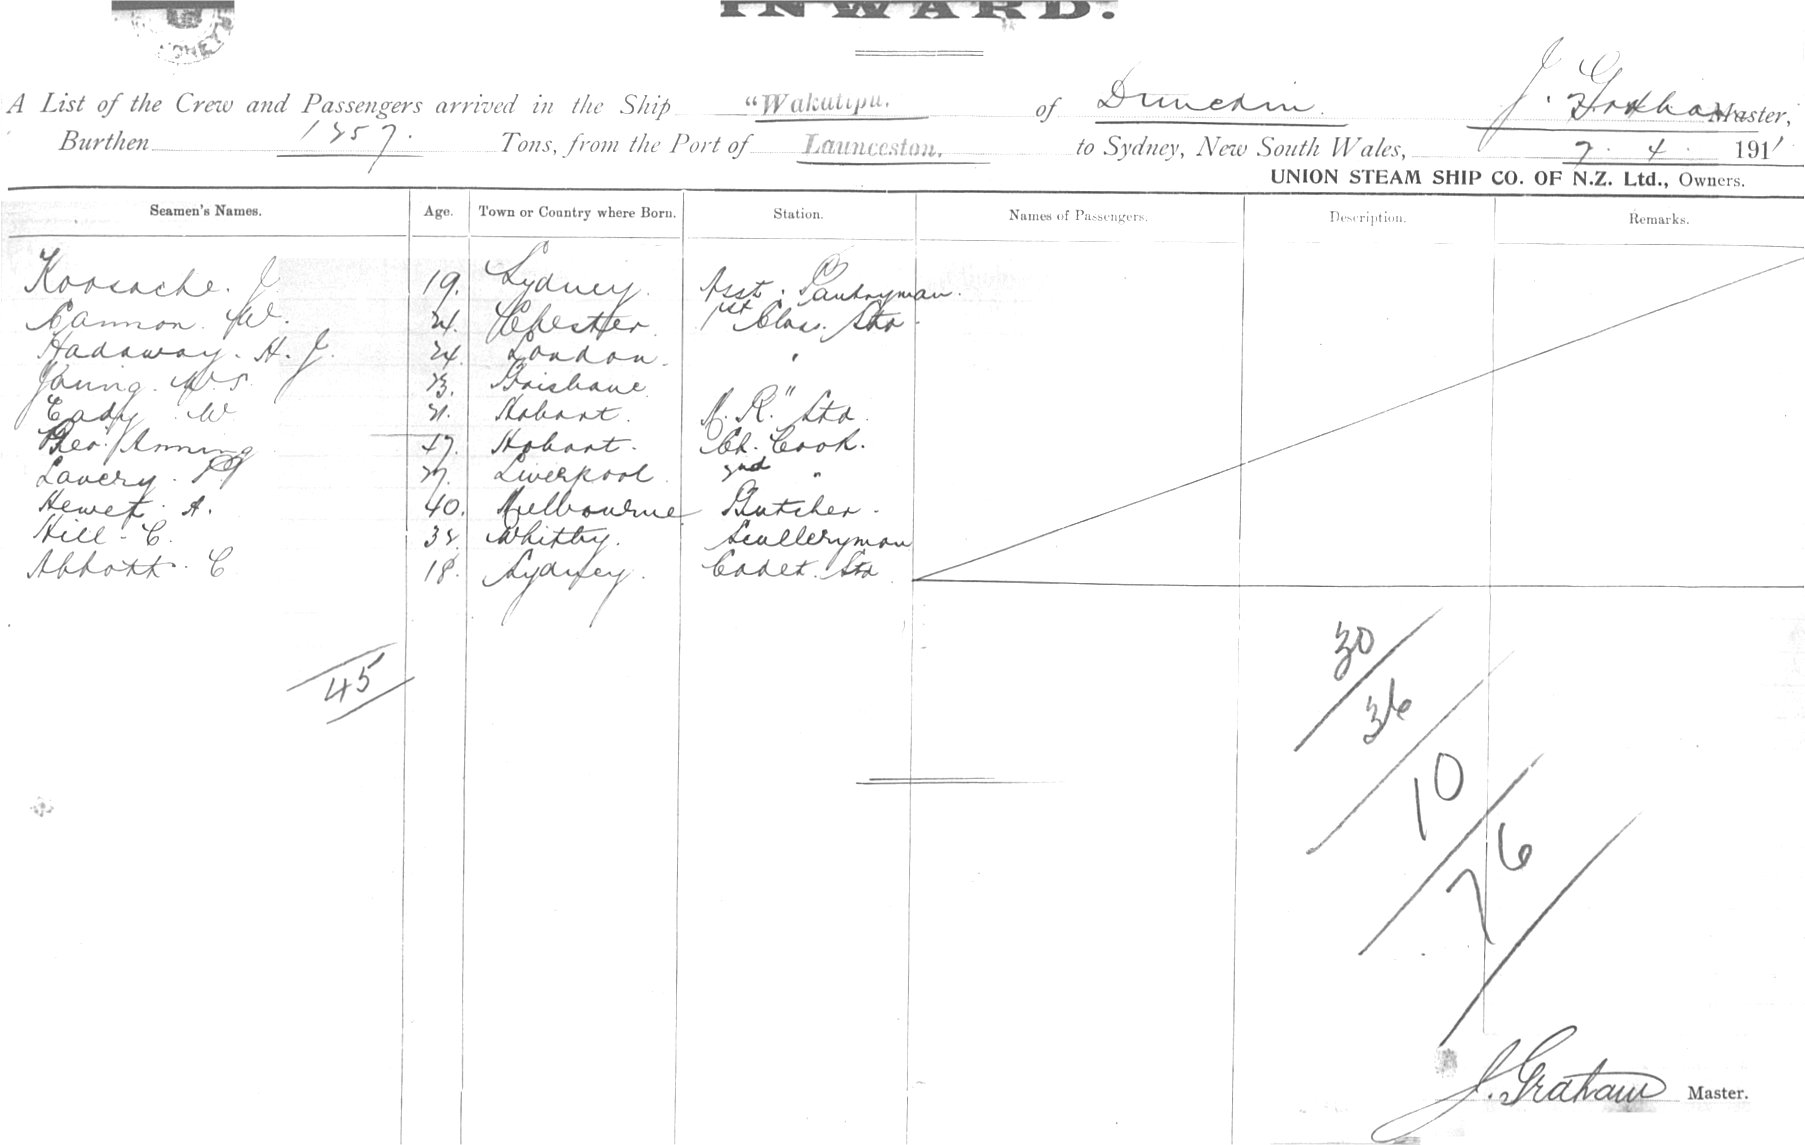 INWARD.
A List of the Crew and Passengers arrived in the Ship "Wakatipu. of Dunedin. J. Graham Master,
Burthen 1257. Tons, from the Port of Launceston. to Sydney, New South Wales, 7. 4. 1911
UNION STEAM SHIP CO. OF N.Z. Ltd., Owners.
Seamen's Names. Age. Town or Country where Born. Station. Names of Passengers. Description. Remarks.
J 19. Sydney. Asst. Pantryman.
Cannon. W. 24. Chester. 1st Class. Std.
Hadaway. H. J. 24. London. "
Young. W. S. 23. Brisbane "
Eady. W 21. Hobart. F. R. Std.
Geo. Anning 47. Hobart. Ch. Cook.
Lavery. 27. Liverpool. 2nd "
Hewet. A. 40. Melbourne Butcher.
Hill. C. 32. Whitby. Sculleryman
Abbott. C 18. Sydney. Cadet. Std
45
30
36
10
76
J. Graham Master.